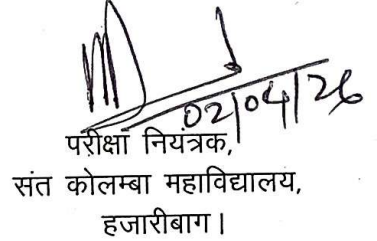 02/04/26
परीक्षा नियंत्रक,
संत कोलम्बा महाविद्यालय,
हजारीबाग।